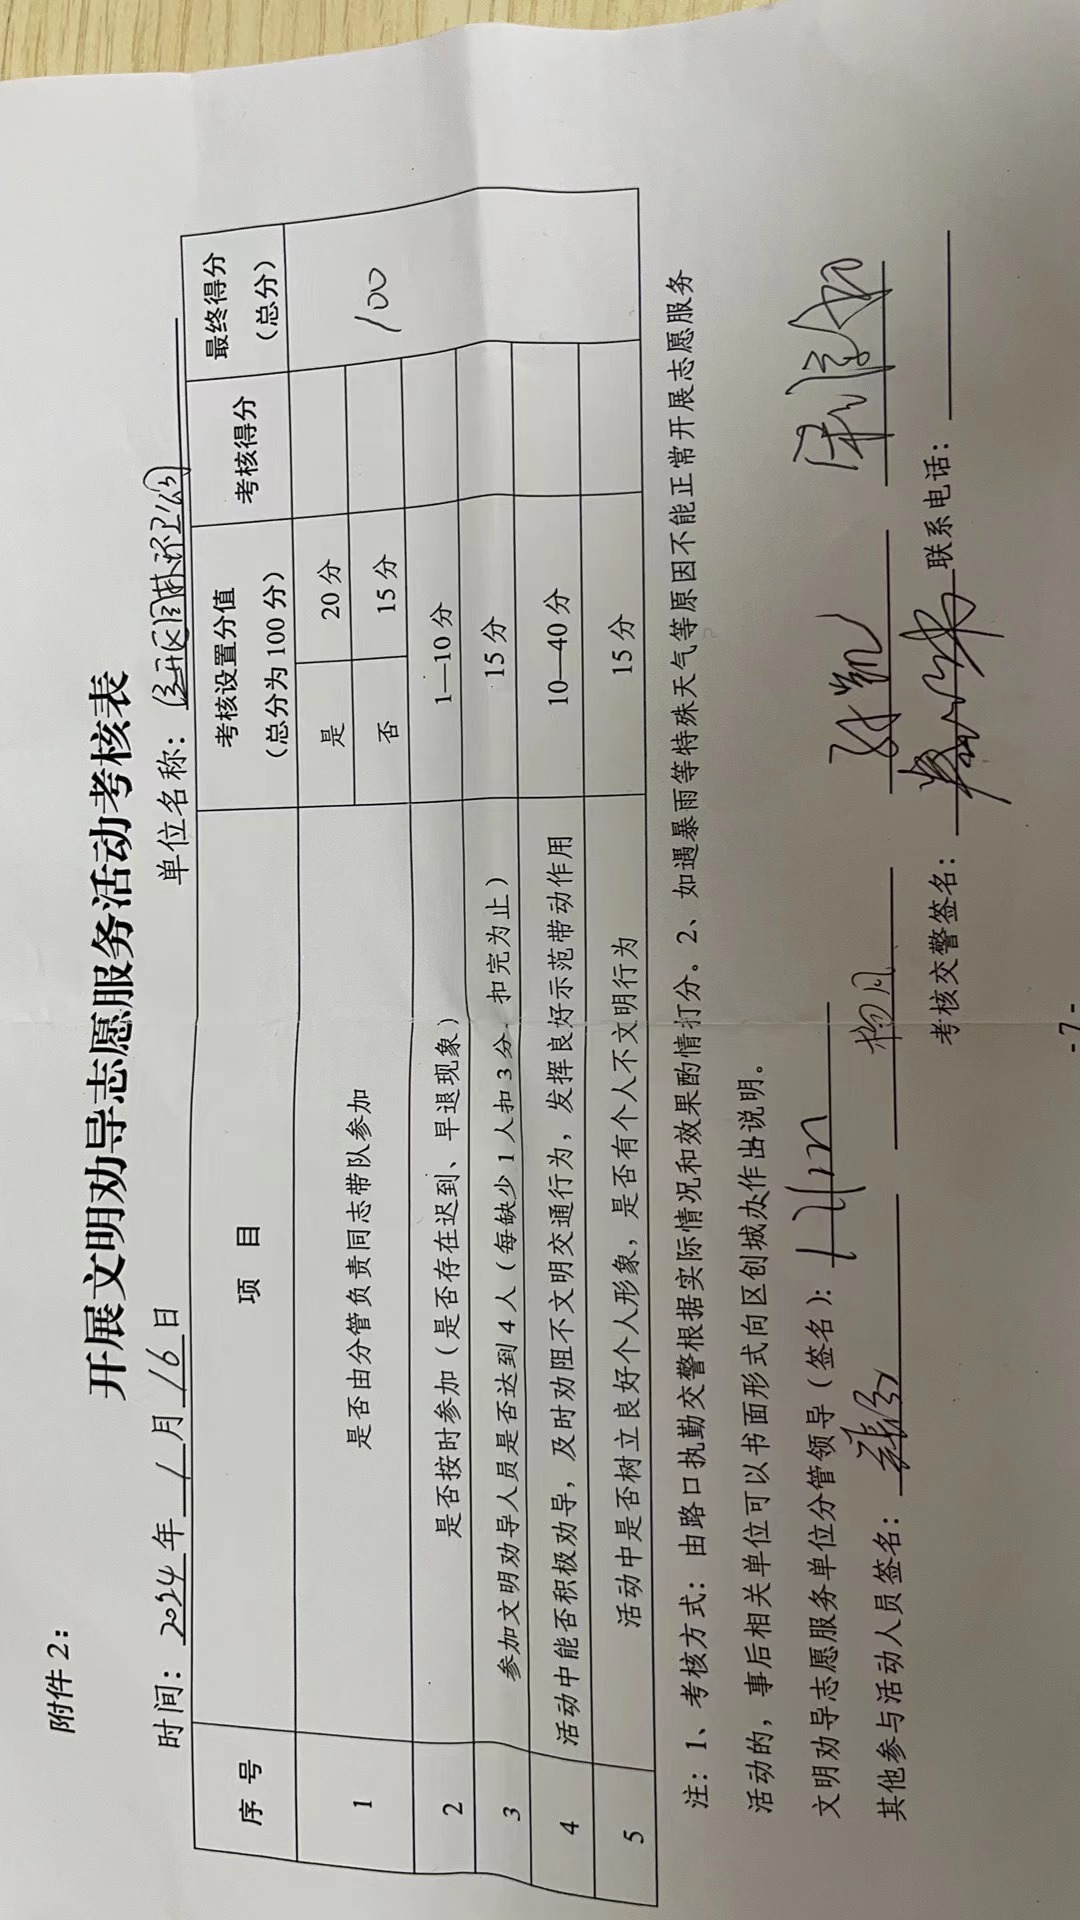 附件 2：
开展文明劝导志愿服务活动考核表
时间：2024年1月16日 单位名称：经开区园林环卫公司
序 号 项 目 考核设置分值（总分为 100 分） 考核得分 最终得分（总分）
1 是否由分管负责同志带队参加 是 20 分 100
否 15 分
2 是否按时参加（是否存在迟到、早退现象） 1—10 分
3 参加文明劝导人员是否达到 4 人（每缺少 1 人扣 3 分，扣完为止） 15 分
4 活动中能否积极劝导，及时劝阻不文明交通行为，发挥良好示范带动作用 10—40 分
5 活动中是否树立良好个人形象，是否有个人不文明行为 15 分
注：1、考核方式：由路口执勤交警根据实际情况和效果酌情打分。2、如遇暴雨等特殊天气等原因不能正常开展志愿服务
活动的，事后相关单位可以书面形式向区创城办作出说明。
文明劝导志愿服务单位分管领导（签名）：
其他参与活动人员签名：
考核交警签名： 联系电话：
- 7 -